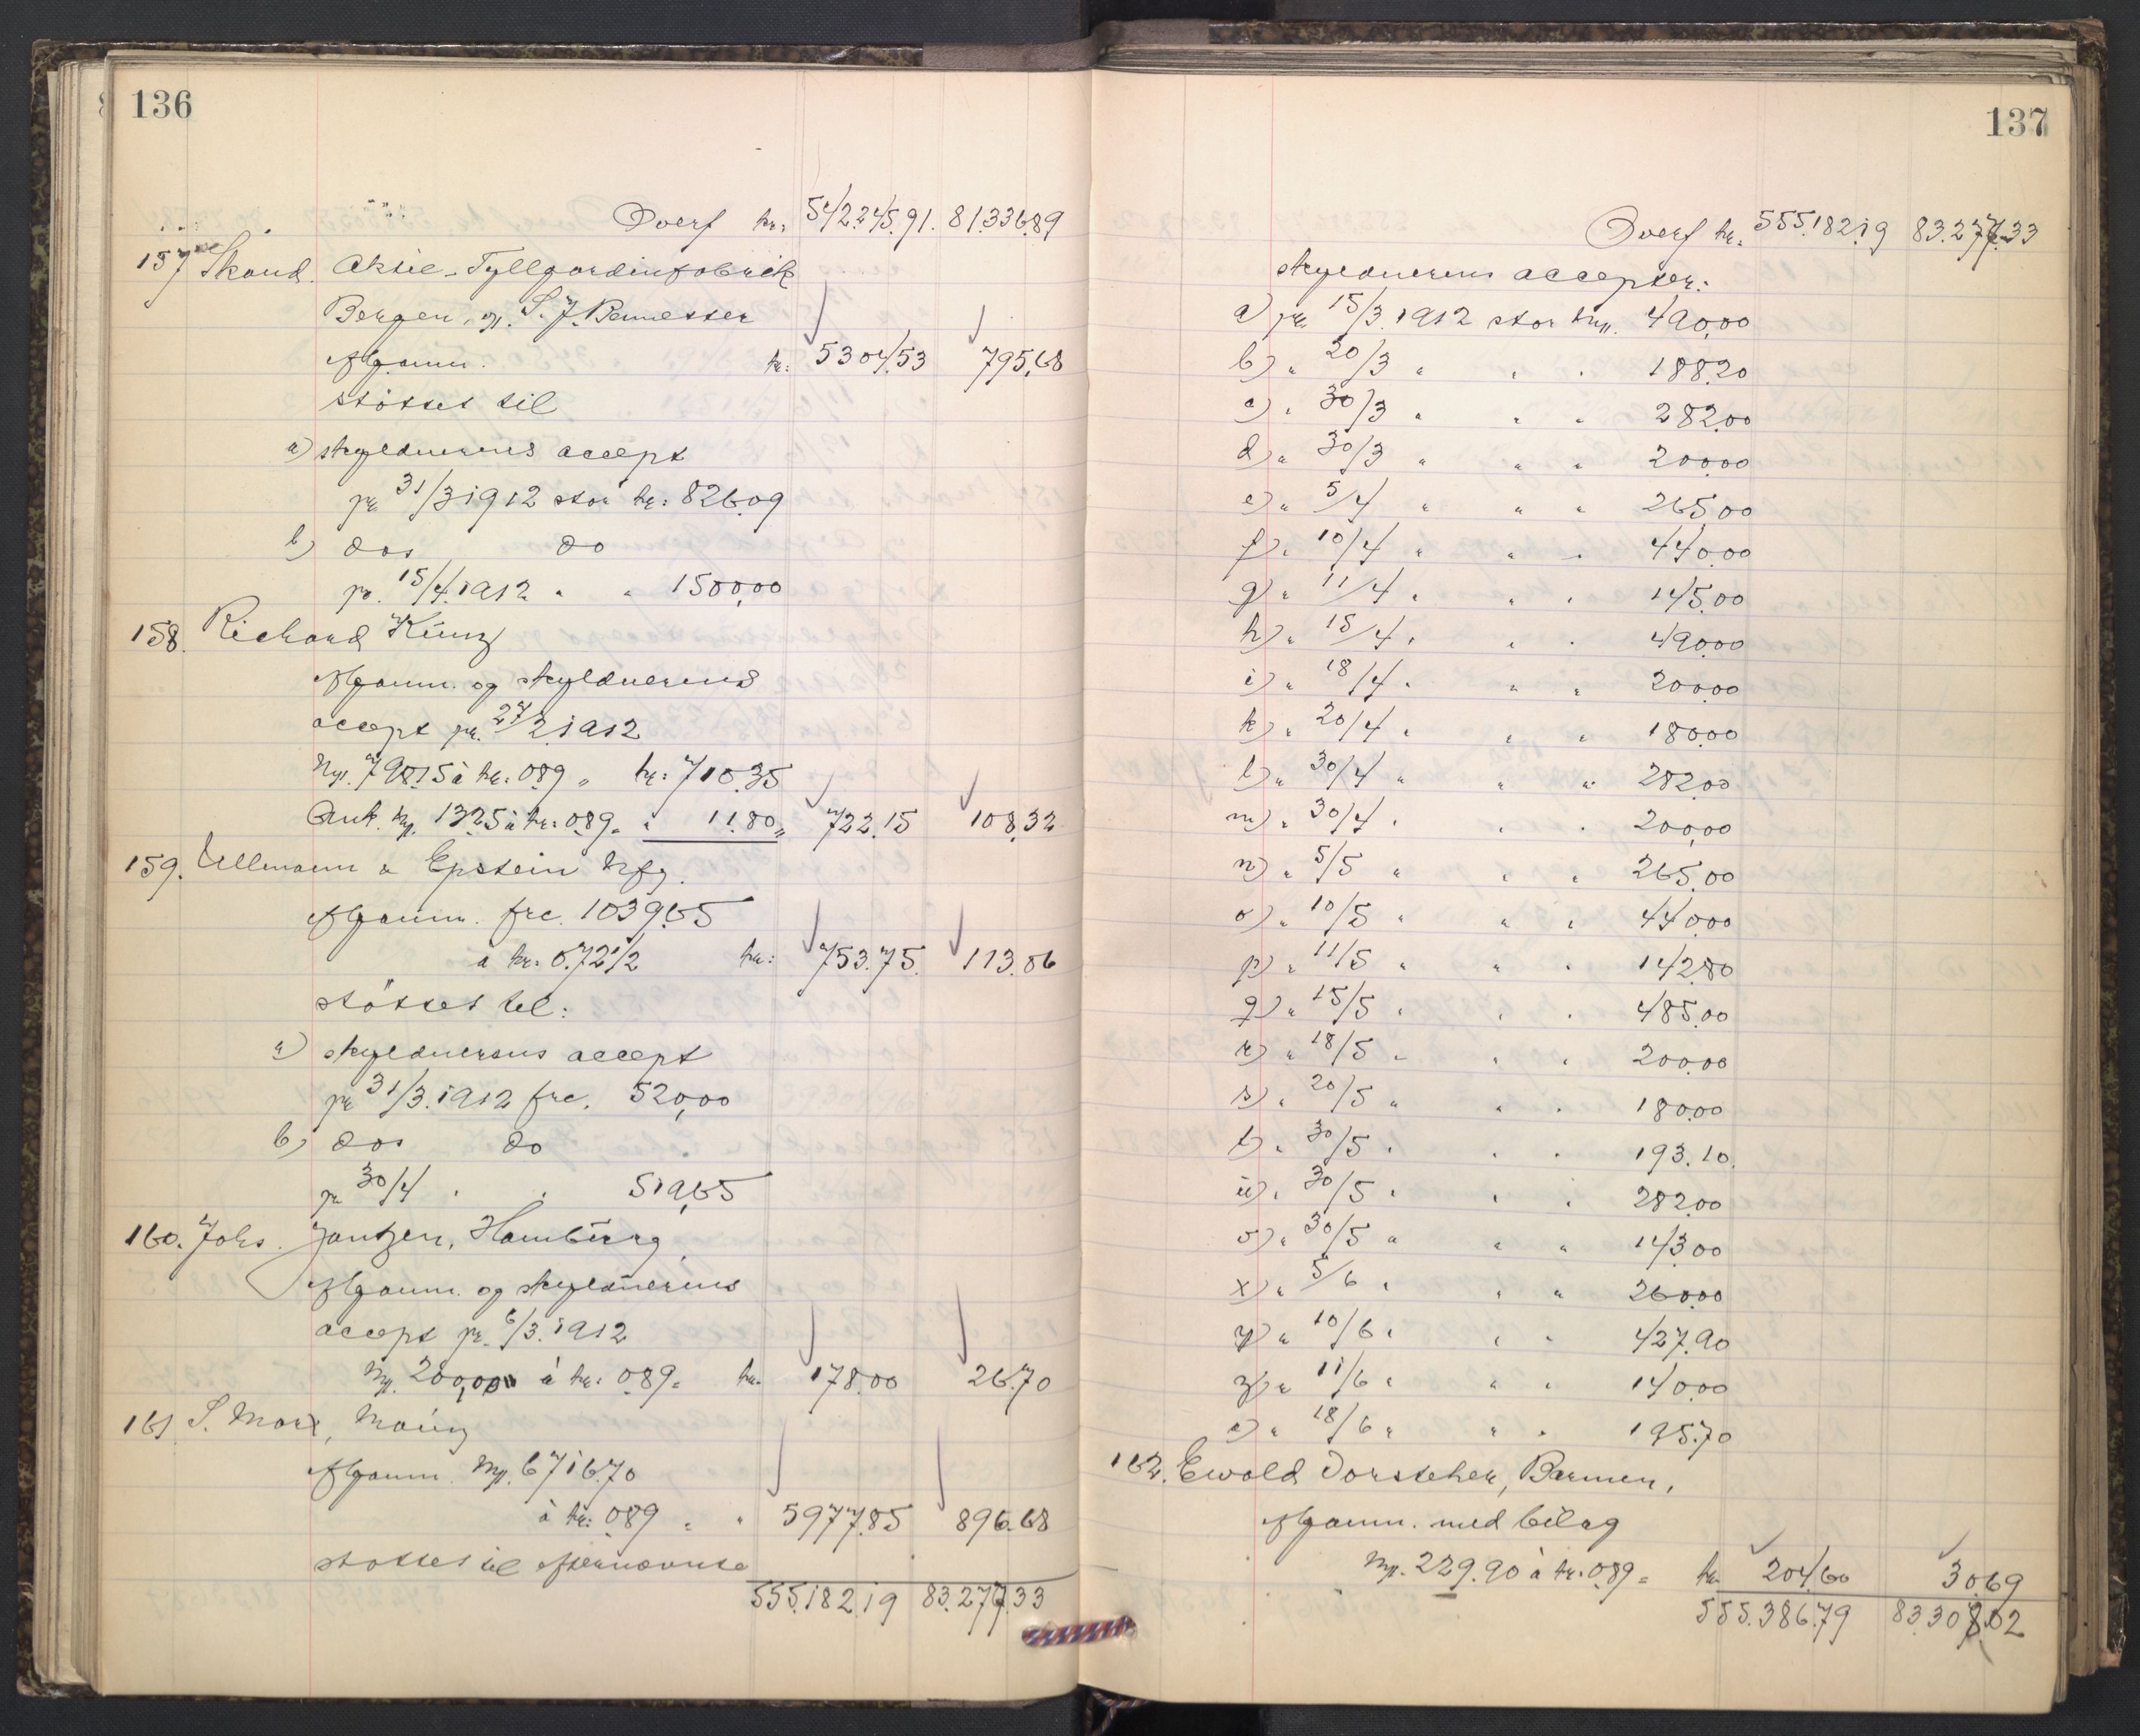 136
Overf kr: 542.245.91. 81.336.89
157 Skand. Aktie-Tyllgardinfabrik
Bergen, v. S. J. Bennetter
Afgaum. kr: 5304.53 795.68
støttet til
a) skyldnerens accept
pr 31/3 1912 stor kr: 826.09
b) dos do
pr. 15/4.1912 " " 1500,00
158. Richard Künz
Afgaum. og skyldnerens
accept pr. 27/2.1912
Mk. 798.15 à kr: 0.89 = kr: 710.35
Omk. Mk. 13.25 à kr: 0.89 = " 11.80 = 722.15 108.32
159. Ullmann & Epstein Nfg.
Afgaum. frc. 1039.65
à kr: 0.72 1/2 kr: 753.75. 113.06
støttet til:
a) skyldnerens accept
pr 31/3.1912 frc. 520,00
b) dos do
pr 30/4 " " 519,65
160. Johs. Jantzen, Hamburg,
Afgaum. og skyldnerens
accept pr. 6/3.1912
Mk. 200,00 à kr: 0.89 = kr. 178.00 26.70
161 S. Marx, Mainz
Afgaum. Mk. 6716.70
à kr: 0.89 = " 5977.85 896.68
støttet til efternævnte
555.182.19 83.277.33
137
Overf kr. 555.182.19 83.277.33
skyldnerens accepter:
a) pr. 15/3.1912 stor Mk. 490,00
b) " 20/3 " " " 188.20
c) " 30/3 " " " 282.00
d) " 30/3 " " " 200.00
e) " 5/4 " " " 265.00
f) " 10/4 " " " 440.00
g) " 11/4 " " " 145.00
h) " 15/4 " " " 490.00
i) " 18/4 " " " 200.00
k) " 20/4 " " " 180.00
l) " 30/4 " " " 282.00
m) " 30/4 " " " 200,00
n) " 5/5 " " " 265.00
o) " 10/5 " " " 440.00
p) " 11/5 " " " 142.80
q) " 15/5 " " " 485.00
r) " 18/5 " " " 200.00
s) " 20/5 " " " 180.00
t) " 30/5 " " " 193.10.
u) " 30/5 " " " 282.00
v) " 30/5 " " " 143.00
x) " 5/6 " " " 260.00
y) " 10/6 " " " 427.90
z) " 11/6 " " " 140.00
a) " 18/6 " " " 195.70
162. Ewald Vorsteher, Barmen,
Afgaum. med bilag
Mk. 229.90 à kr: 0.89 = kr. 204.60 30.69
555.386.79 83.308.02